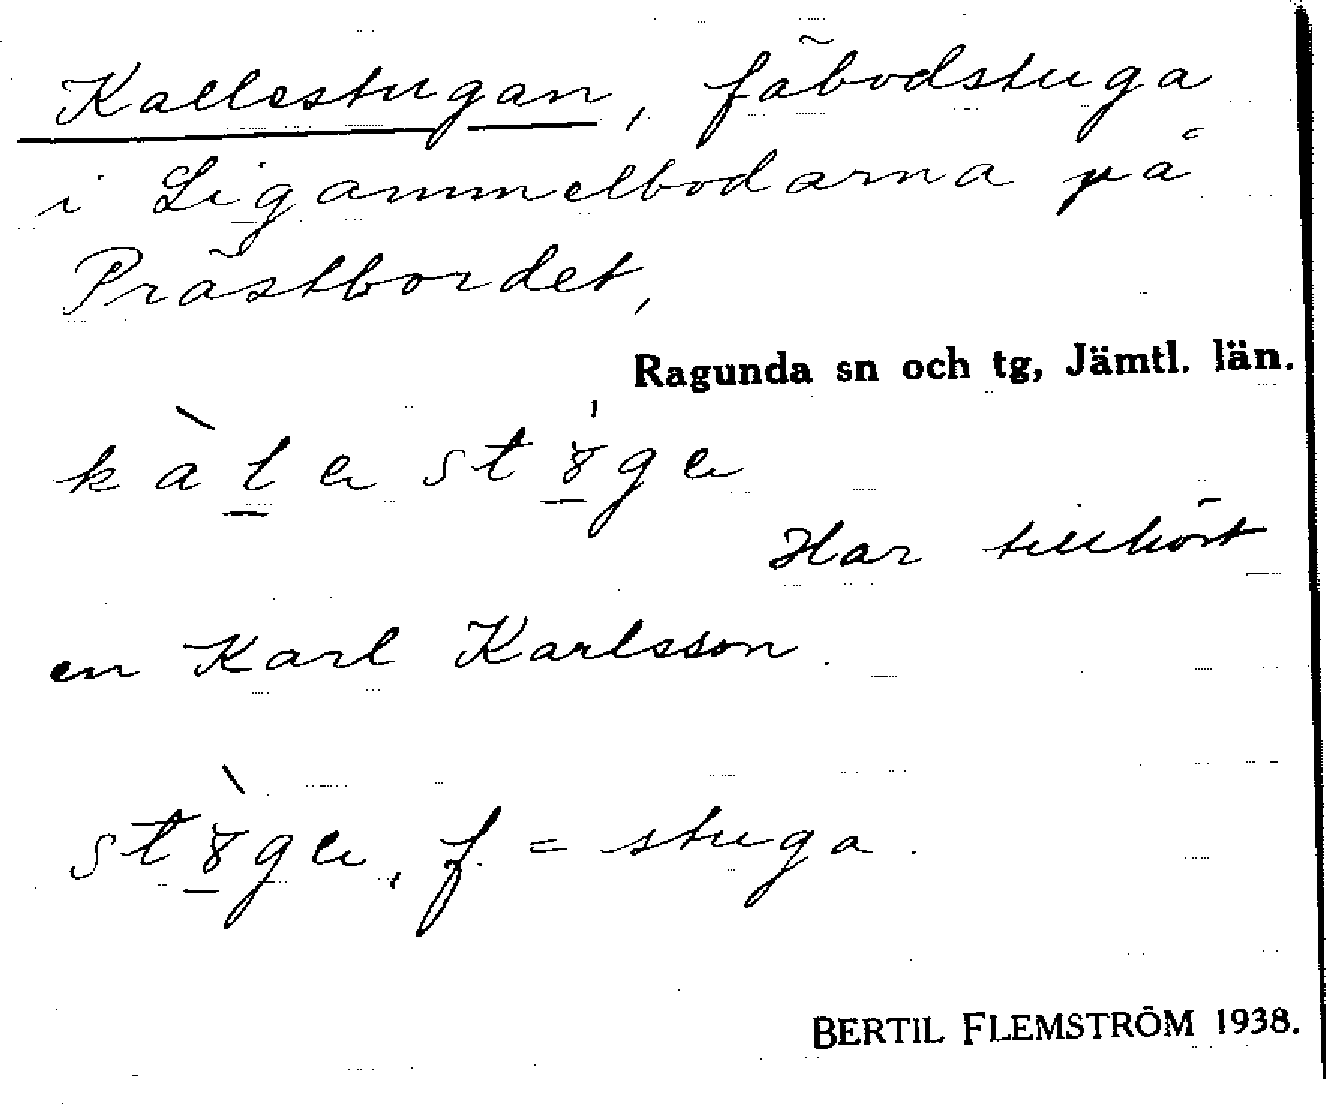 Kallestugan, fäbodstuga
i Ligammelbodarna på
Prästbordet,
Ragunda sn och tg, Jämtl. län.
Har tillhört
en Karl Karlsson.
f. = stuga.
BERTIL FLEMSTRÖM 1938.